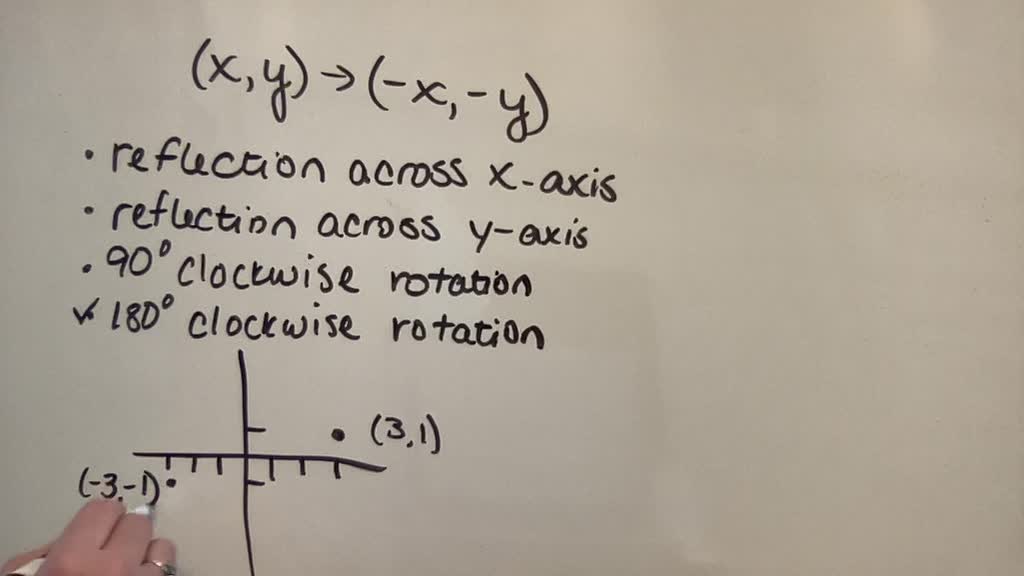 (x,y)→(-x,-y)
• reflection across x-axis
• reflection across y-axis
• 90° clockwise rotation
✓ 180° clockwise rotation
(3,1)
(-3,-1)